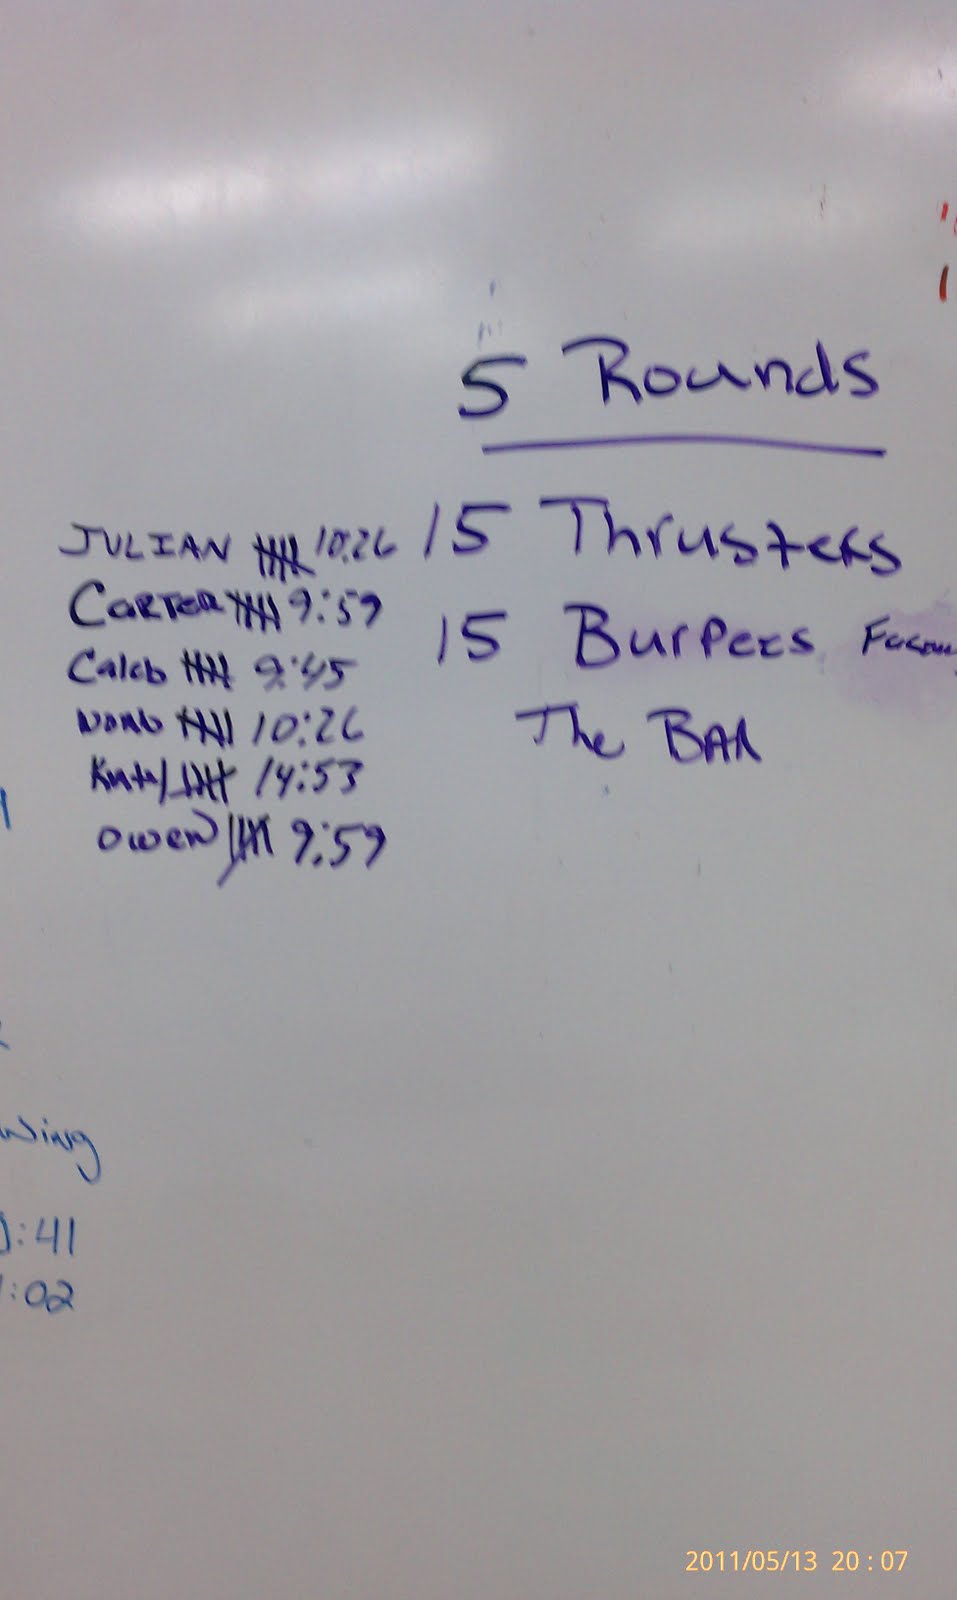 5 Rounds
15 Thrusters
15 Burpees
The BAR
JULIAN 10:26
CARTER 9:59
Caleb 9:45
10:26
14:53
Owen 9:59
wing
:41
:02
2011/05/13 20:07